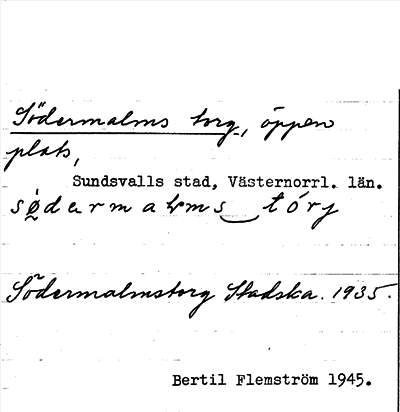 Södermalms torg, öppen
plats,
Sundsvalls stad, Västernorrl. län.
sø̀dermalms tórj
Södermalmstorg Stadska. 1935.
Bertil Flemström 1945.